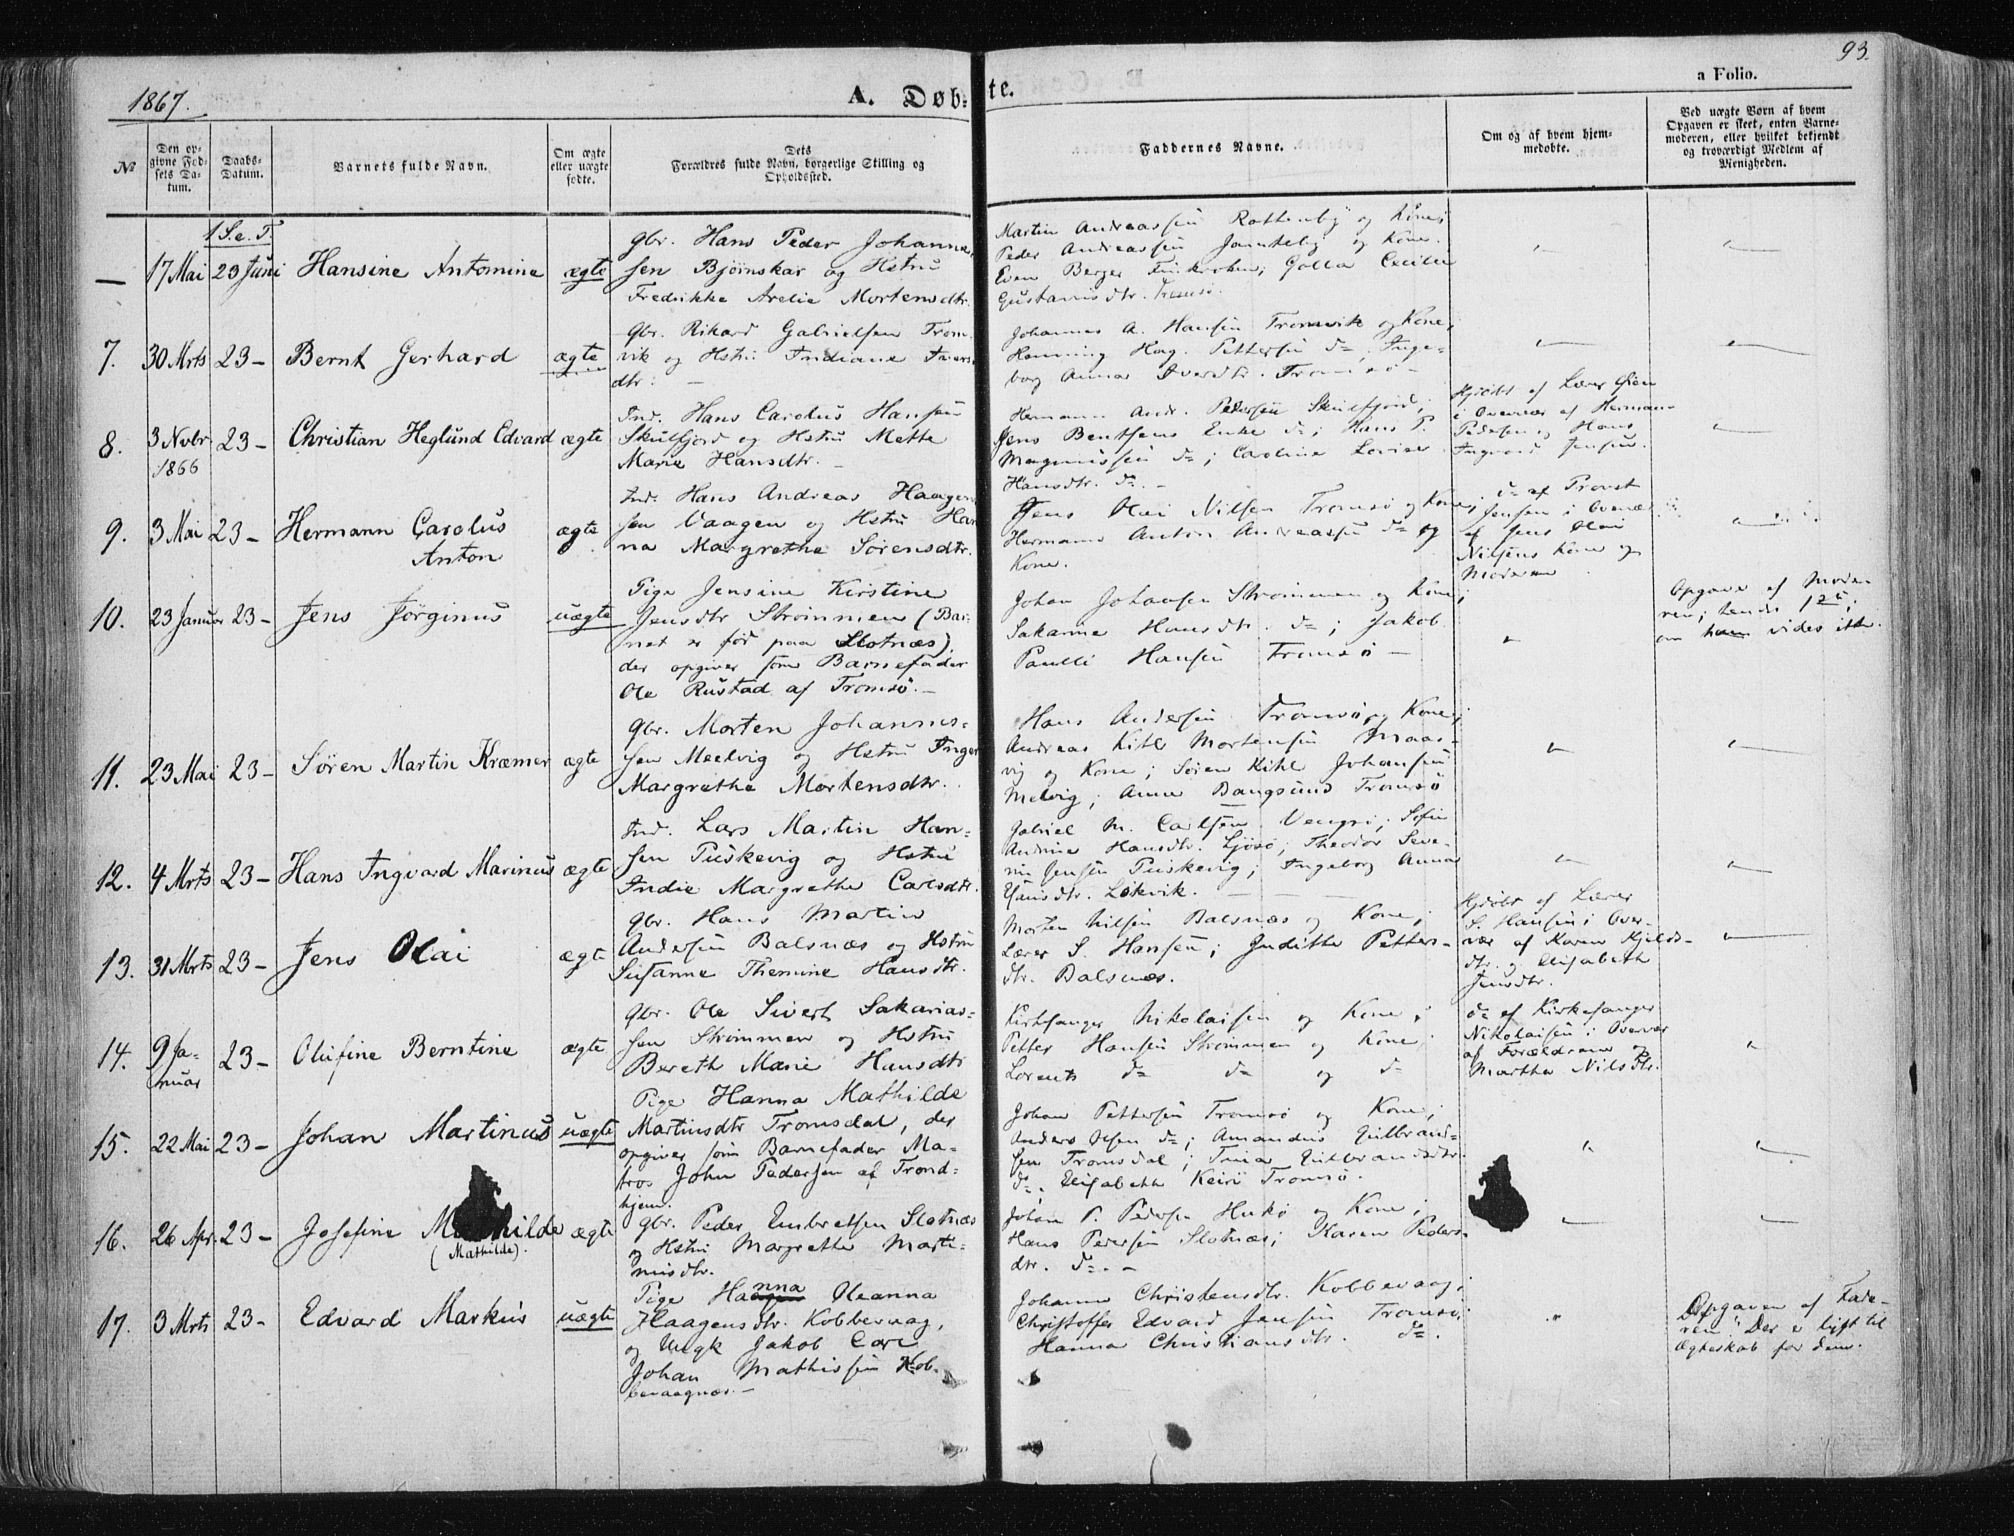 93.
a Folio.
1867.
A. Døbte.
№
Den opgivne Fødsels Datum.
Daabs-Datum.
Barnets fulde Navn.
Om ægte eller uægte fødte.
Dets Forældres fulde Navn, borgerlige Stilling og Opholdssted.
Faddernes Navne.
Om og af hvem hjemmedøbte.
Ved uægte Børn af hvem Opgaven er skeet, enten Barnemoderen, eller hvilket bekjendt og troværdigt Medlem af Menigheden.
1 S. e. T.
— 17 Mai 23 Juni Hansine Antomine ægte
Gbr. Hans Peder Johanne-
sen Bjørnskar og Hstru
Fredrikke Arelie Mortensdtr.
Martin Andreassen og Kone;
Peder Andreassen og Kone.
Even Berger Finkroken; Golla Cecilie
Gustavisdtr. Tromsø.
7. 30 Mrts 23 — Bernt Gerhard ægte
Gbr. Rikard Gabrielsen Trom-
vik og Hstru Indiane Iver
dtr: —
Johannes A. Hansen Tromvik og Kone;
Henning Hag. Pettersen d=; Inge-
borg Anna Tromsø —
8. 3 Novbr 1866 23 — Christian Heglund Edvard ægte
Ind. Hans Carolus Hansen
Skulfjord og Hstru Mette
Marie Hansdtr. —
Hermann Andr. Pedersen Skulfjord;
Jens Bentsens Enke d=; Hans P.
Magnussen d=; Caroline Lovise
Hansdtr. d=. —
Hjdøbt af Lærer
i Overvær af Herman
Pedersen og Hans
Ingvard Jensen.
9. 3 Mai 23 — Hermann Carolus Anton ægte
Ind. Hans Andreas Haagen-
sen Vaagen og Hstru Han
na Margrethe Sørensdtr.
Jens Olai Nilsen Tromsø og Kone;
Hermann Anton Andreassen d= og
Kone.
d= af Provst
Jensen i Overvær
af Jens Olai
Nilsens Kone og
Moderen
10. 23 Januar 23 — Jens Jørginus uægte
Pige Jensine Kirstine
Jensdtr Strømmen (Bar-
net er fød paa Slotnæs),
der opgiver som Barnefader
Ole Rustad af Tromsø. —
Johan Johansen Strømmen og Kone;
Sakarine Hansdtr. d=; Jakob
Paulli Hansen Tromsø —
Opgave af Mode-
ren; hendes 1ste;
om ham vides ikke.
11. 23 Mai 23 — Søren Martin Kræmer ægte
Gbr. Morten Johannes-
sen Meelvig og Hstru Inger
Margrethe Mortensdtr.
Hans Andersen Tromsø og Kone;
Andreas Kihl Mortensen Maas-
vig og Kone; Søren Kihl Johansen
Melvig; Anne Bangsund Tromsø
12. 4 Mrts 23 — Hans Ingvard Marinus ægte
Ind. Lars Martin Han-
sen Tuskevig og Hstru
Indie Margrethe Carlsdtr.
Gabriel M. Carlsen Vengsø; Sofie
Andrine Hansdtr. Theodor Seve-
rin Jensen Tuskevig; Ingeborg Anna
Hansdtr. Løkvik.
13. 31 Mrts 23 — Jens Olai ægte
Gbr. Hans Martin
Andersen Balsnæs og Hstru
Susanne Themine Hansdtr.
Morten Nilsen Balsnæs og Kone;
Lærer S. Hansen; Judithe Petters-
dtr. Balsnæs.
Hjdøbt af Lærer
S. Hansen i Over-
vær af Karen Kjelds-
dtr. og Elisabeth
Jensdtr.
14. 9 Januar 23 — Olufine Berntine ægte
Gbr. Ole Sivert Sakarias-
sen Strømmen og Hstru
Bereth Marie Hansdtr
Kirksanger Nikolaisen og Kone;
Petter Hansen Strømmen og Kone
Lorents d= d= og d=
d= af Kirkesanger
Nikolaisen i Overvær
af Forældrene og
Martha Nilsdtr.
15. 22 Mai 23 — Johan Martinus uægte
Pige Hanna Mathilde
Martinsdtr Tromsdal, der
opgiver som Barnefader Ma-
tros John Pedersen af Trond-
hjem.
Johan Pettersen Tromsø og Kone;
Anders Olsen d=; Amandus Gulbrand-
sen Tromsdal; Trina Gulbrandsdtr.
d=, Elisabeth Tromsø.
16. 26 Apr. 23 — Josefine Mathilde ægte
(Mathilde).
Gbr. Peder Embretsen Slotnæs
og Hstru Margrethe Marti-
nusdtr.
Johan P. Pedersen og Kone;
Hans Pedersen Slotnæs; Karen Peders-
dtr. d=. —
17. 3 Mrts 23 — Edvard Markus uægte
Pige Hanna Oleanna
Haagensdtr. Kobbevaag,
og Ungk Jakob Carl
Johan Mathissen Kob-
bevaagnæs. —
Johanne Christensdtr. Kobbevaag;
Christoffer Edvard Jensen Tromsø;
Hanna Christiansdtr. d=.
Opgaven af Fade-
ren. Der er lyst til
Ægteskab for dem.